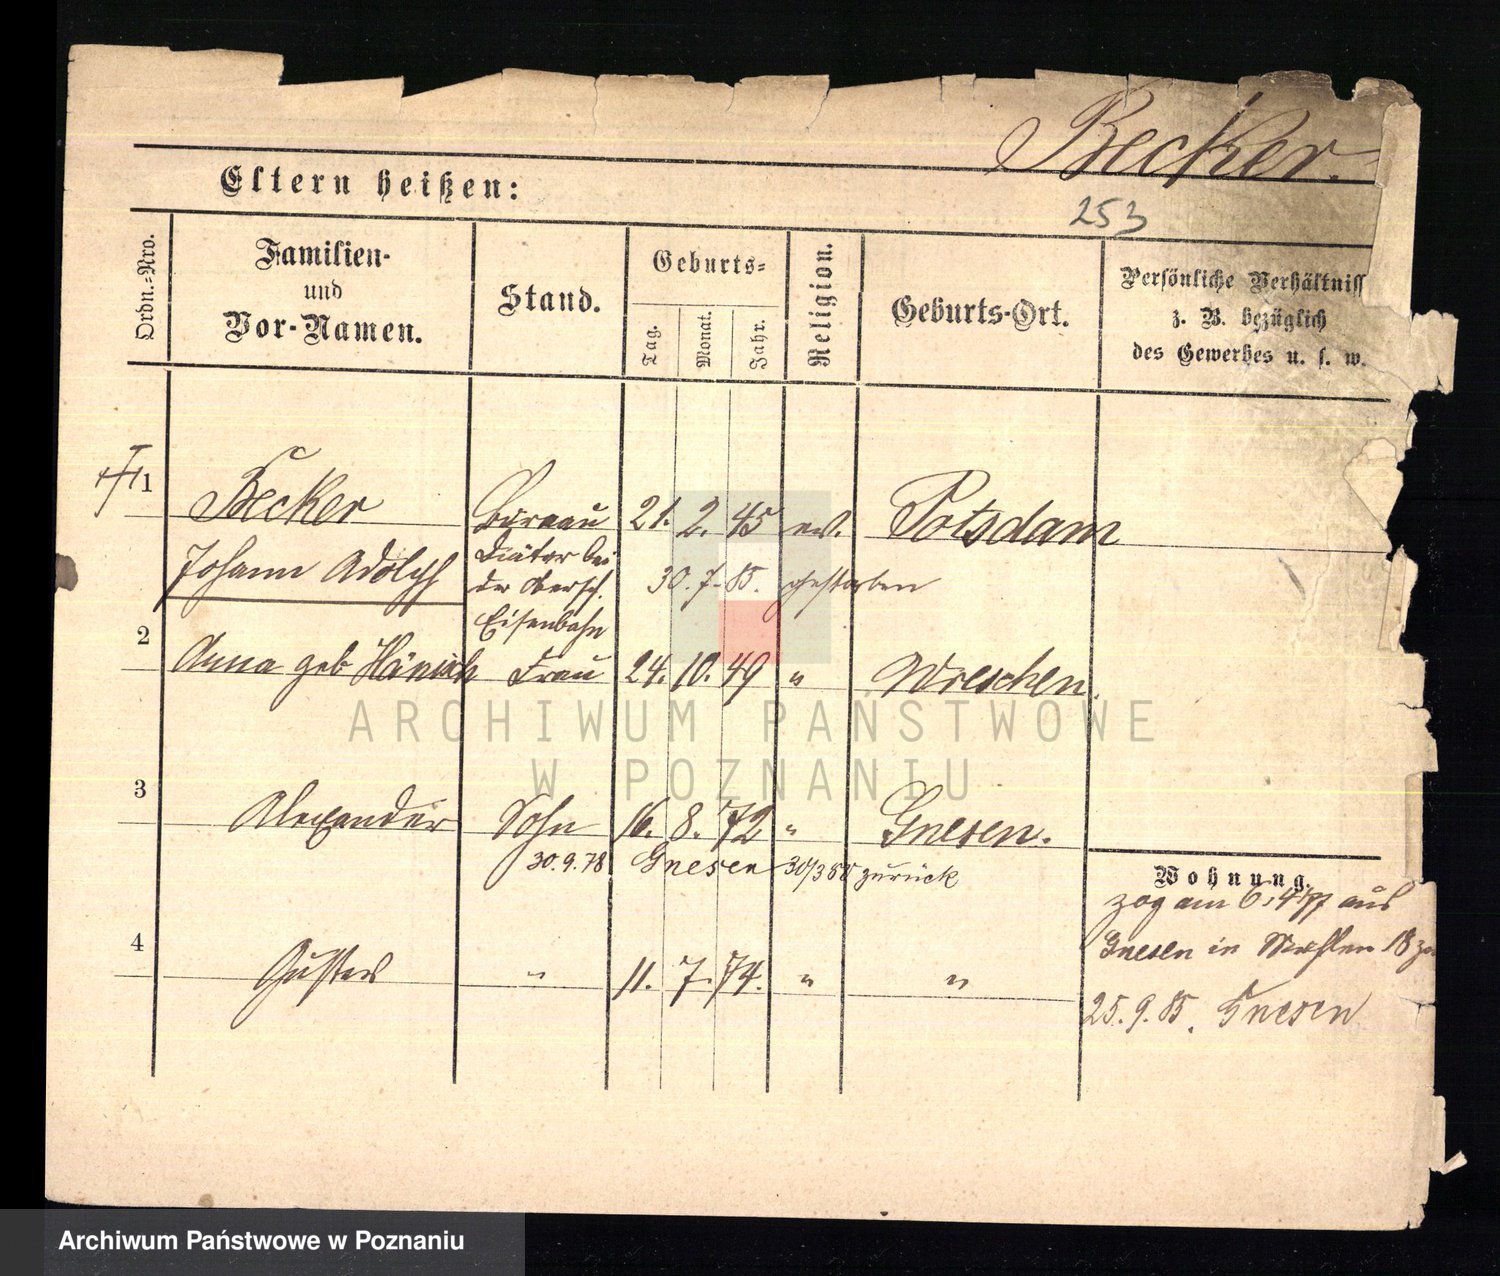 Becker.
Eltern heißen:
253
Ordn.-Nro.
Familien-
und
Vor-Namen.
Stand.
Geburts-
Tag.
Monat.
Jahr.
Religion.
Geburts-Ort.
Persönliche Verhältniss
z. B. bezüglich
des Gewerbes u. s. w.
1 Becker Büreau 21. 2. 45 ev. Potsdam
Johann Adolph Diätar bei 30. 7. 85. gestorben
der Obersch.
Eisenbahn
2 Anna geb Hänisch Frau 24. 10. 49 " Wreschen.
3 Alexander Sohn 16. 8. 72 " Gnesen.
30.9.78 Gnesen 30/3 80 zurück
Wohnung
zog am 6/4 77 aus
Gnesen in 18
4 Gustav " 11. 7. 74. " "
25. 9. 85. Gnesen
ARCHIWUM PAŃSTWOWE
W POZNANIU
Archiwum Państwowe w Poznaniu